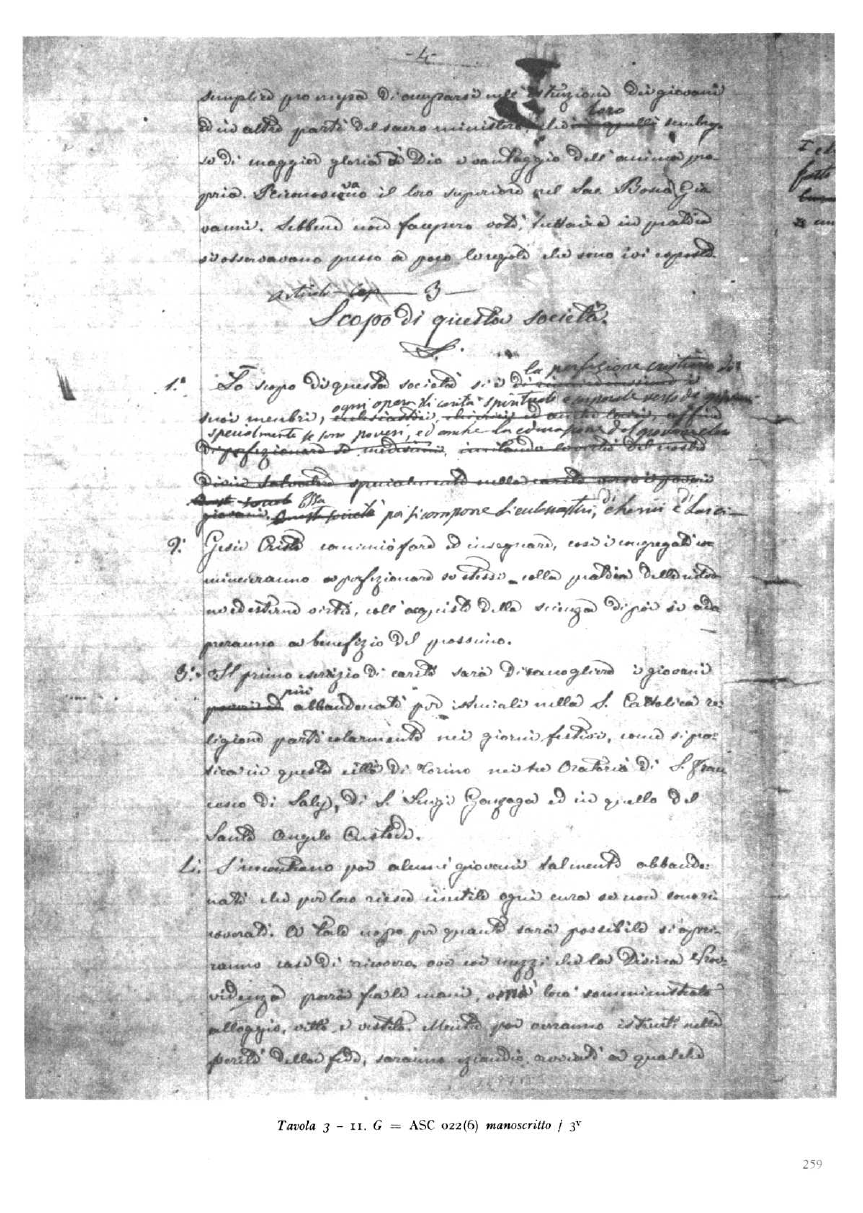 -4-
semplice promessa di occuparsi nell'istruzione dei giovani
loro
ed in altre parti del sacro ministero, che sembras-
se di maggior gloria di Dio e vantaggio dell'anima pro-
pria. Riconosceva il loro superiore nel Sac. Bosco Gio-
vanni. Sebbene non facessero voti, tuttavia in pratica
si osservavano presso a poco le regole che sono ivi esposte.
Articolo 3
Scopo di questa società.
la perfezione cristiana de'
1.° Lo scopo di questa società si è
ogni opera di carità spirituale e corporale verso de' giovani
suoi membri,
specialmente se sono poveri, ed anche la educazione del giovane clero
di perfezionare se medesimi, imitando le virtù del nostro
Divin Salvatore specialmente nella carità verso i poveri
Essa
giovani. poi si compone di ecclesiastici, di cherici e di laici
2.° Gesù Cristo cominciò fare ed insegnare, così i congregati co-
mincieranno a perfezionare se stessi colla pratica delle inter-
ne ed esterne virtù, coll'acquisto della scienza, di poi si ado-
preranno a benefizio del prossimo.
3.° Il primo esercizio di carità sarà di raccogliere i giovani
più
poveri ed abbandonati per istruirli nella S. Cattolica re-
ligione particolarmente nei giorni festivi, come si pra-
tica in questa città di Torino nei tre Oratorii di S. Fran-
cesco di Sales, di S. Luigi Gonzaga ed in quello del
Santo Angelo Custode.
4.° S'incontrano poi alcuni giovani talmente abbando-
nati che per loro riesce inutile ogni cura se non sono ri-
coverati. A tale uopo per quanto sarà possibile si apri-
ranno case di ricovero, ove coi mezzi che la Divina Prov-
videnza porrà fra le mani, verrà loro somministrato
alloggio, vitto e vestito. Mentre poi verranno istruiti nelle
verità della fede, saranno eziandio avviati a qualche
Tavola 3 - 11. G = ASC 022(6) manoscritto / 3v
259